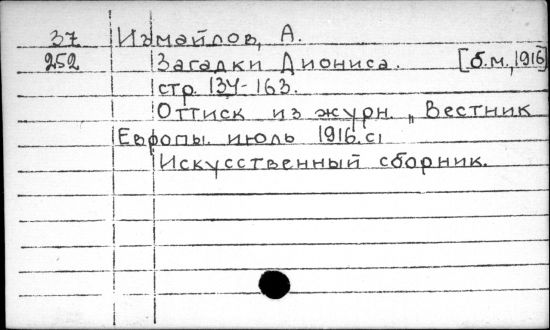 37 Измайлов, А.
252 Загадки Диониса. [б.м., 1916]
стр. 134-163.
Оттиск из журн. „Вестник
Европы июль 1916. с1
Искусственный сборник.